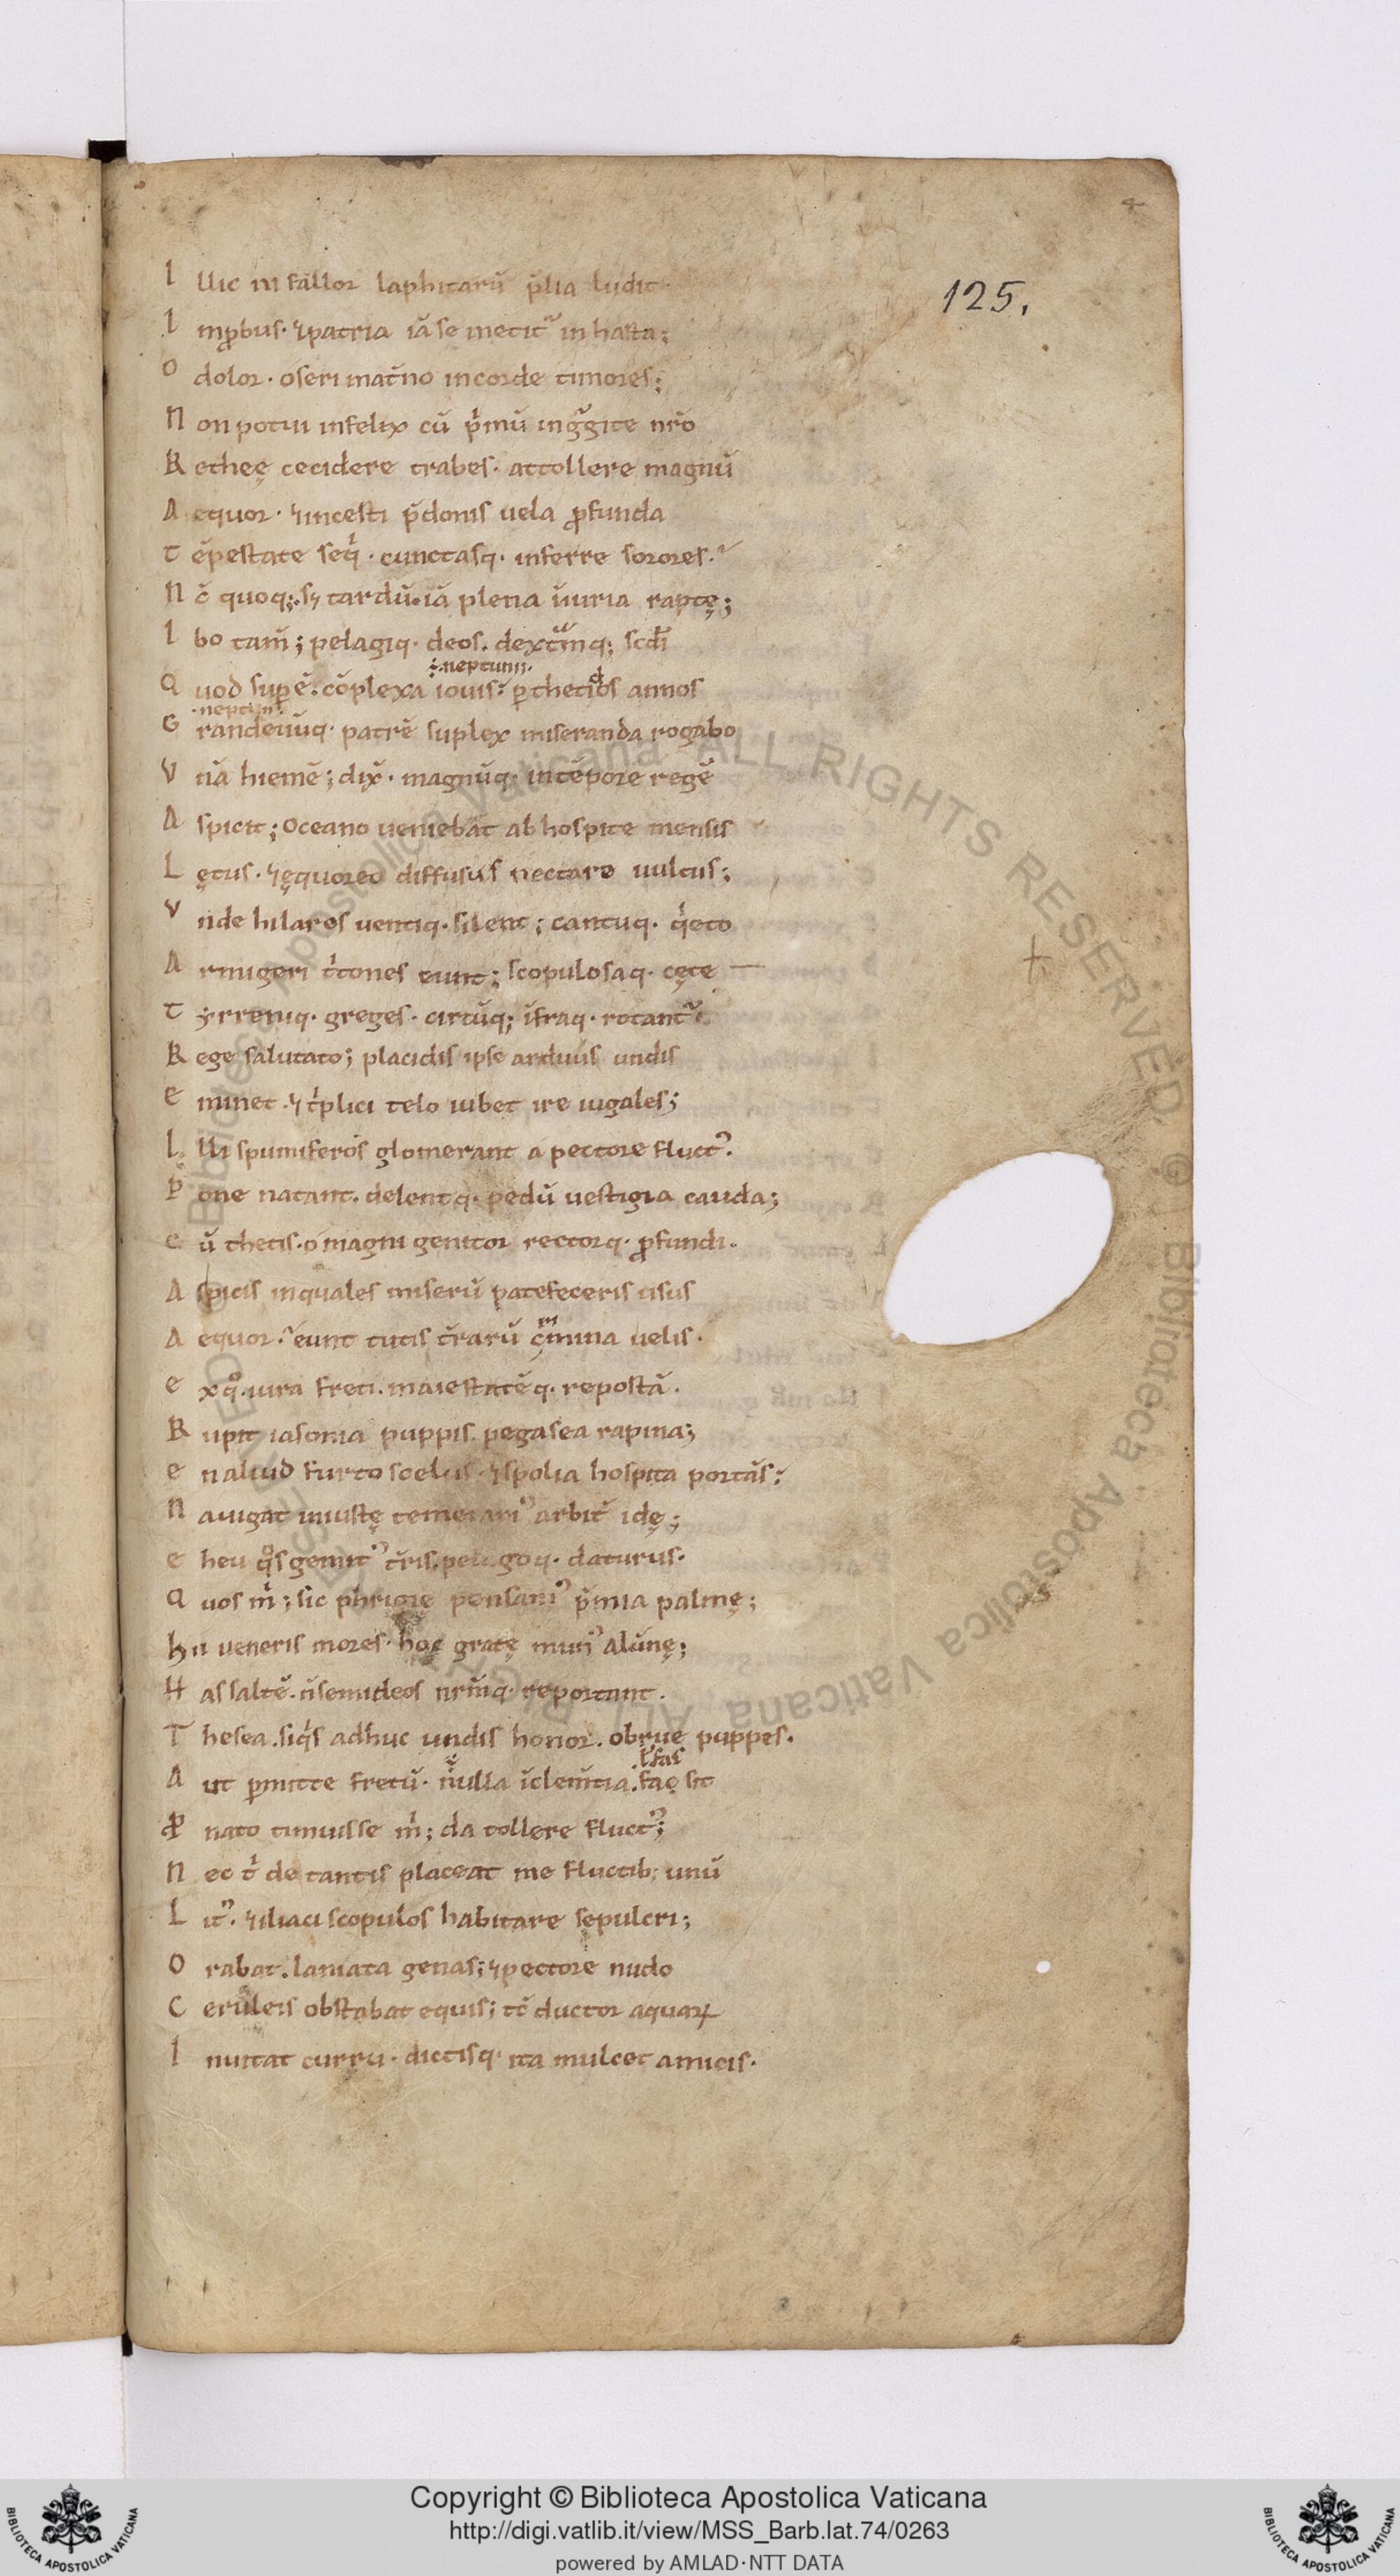 125.
I llic ni fallor laphitarū p̄lia ludit·
I mꝓbus· ⁊patria iā se metit᷑ in hasta;
O dolor· o seri mat̄no incorde timores;
N on potui infelix cū pͥmū ingᷓgite nr̄o
R etheę cecidere trabes· attollere magnū
A equor· ⁊incesti p̄donis uela ꝓfunda
T ēpestate seqͥ· cunctasq· inferre sorores·
N c̄ quoq;· sꝫ tardū· iā plena iniuria raptę;
I bo tam̄; pelagiq· deos· dext̄mq; scd̄i
·i·neptunii·
Q uod suꝑē· cōplexa iouis· ꝑ thetios annos
·neptunū·
G randeuūq· patrē suplex miseranda rogabo
V nā hiemē; dix̄· magnūq· intēpore regē
A spicit; Oceano ueniebat ab hospite mensis
L ętus· ⁊ęquoreo diffusus nectare uultus;
V nde hilaros uentiq· silent; cantuq· qͥeto
A rmigeri tͥtones eunt; scopulosaq· cęte
T yrreniq· greges· circūq; īfraq· rotant᷑
R ege salutato; placidis ipse arduus undis
E minet· ⁊ tͥplici telo iubet ire iugales;
I lli spumiferos glomerant a pectore fluctꝰ·
P one natant· delentq· pedū uestigia cauda;
E ū thetis· o magni genitor rectorq· ꝓfundi·
A spicis inquales miserū patefeceris usus
A equor· eunt tutis t̄rarū c̄mina uelis·
ri
E xqͦ· iura freti· maiestatēq· repostā·
R upit iasonia puppis pegasea rapina;
E n aliud furto scelus· ⁊spolia hospita portās·
N auigat iniustę temerariꝰ arbit̄ idę;
E heu qͦs gemitꝰ t̄ris· pelagoq· daturus·
Q uos mͥ; sic phrigię pensamꝰ p̄mia palmę;
H ii ueneris mores· hoc gratę munꝰ alūnę;
H as saltē· n̄semideos nrm̄q· reportant·
T hesea· siqͥs adhuc undis honor· obrue puppes·
ł fas
A ut ꝑmitte fretū· nulla īclem̄tia· fac sit
P nato timuisse mͥ; da tollere fluctꝰ;
N ec tͥ de tantis placeat me fluctib; unū
L itꝰ· ⁊iliaci scopulos habitare sepulcri;
O rabat· laniata genas; ⁊pectore nudo
C eruleis obstabat equis; tc̄ ductor aquaꝝ
I nuitat curru· dictisq· ita mulcet amicis·
Copyright © Biblioteca Apostolica Vaticana
http://digi.vatlib.it/view/MSS_Barb.lat.74/0263
powered by AMLAD·NTT DATA